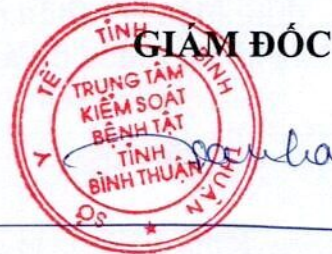 GIÁM ĐỐC
SỞ Y TẾ TỈNH BÌNH THUẬN
TRUNG TÂM
KIỂM SOÁT
BỆNH TẬT
TỈNH
BÌNH THUẬN